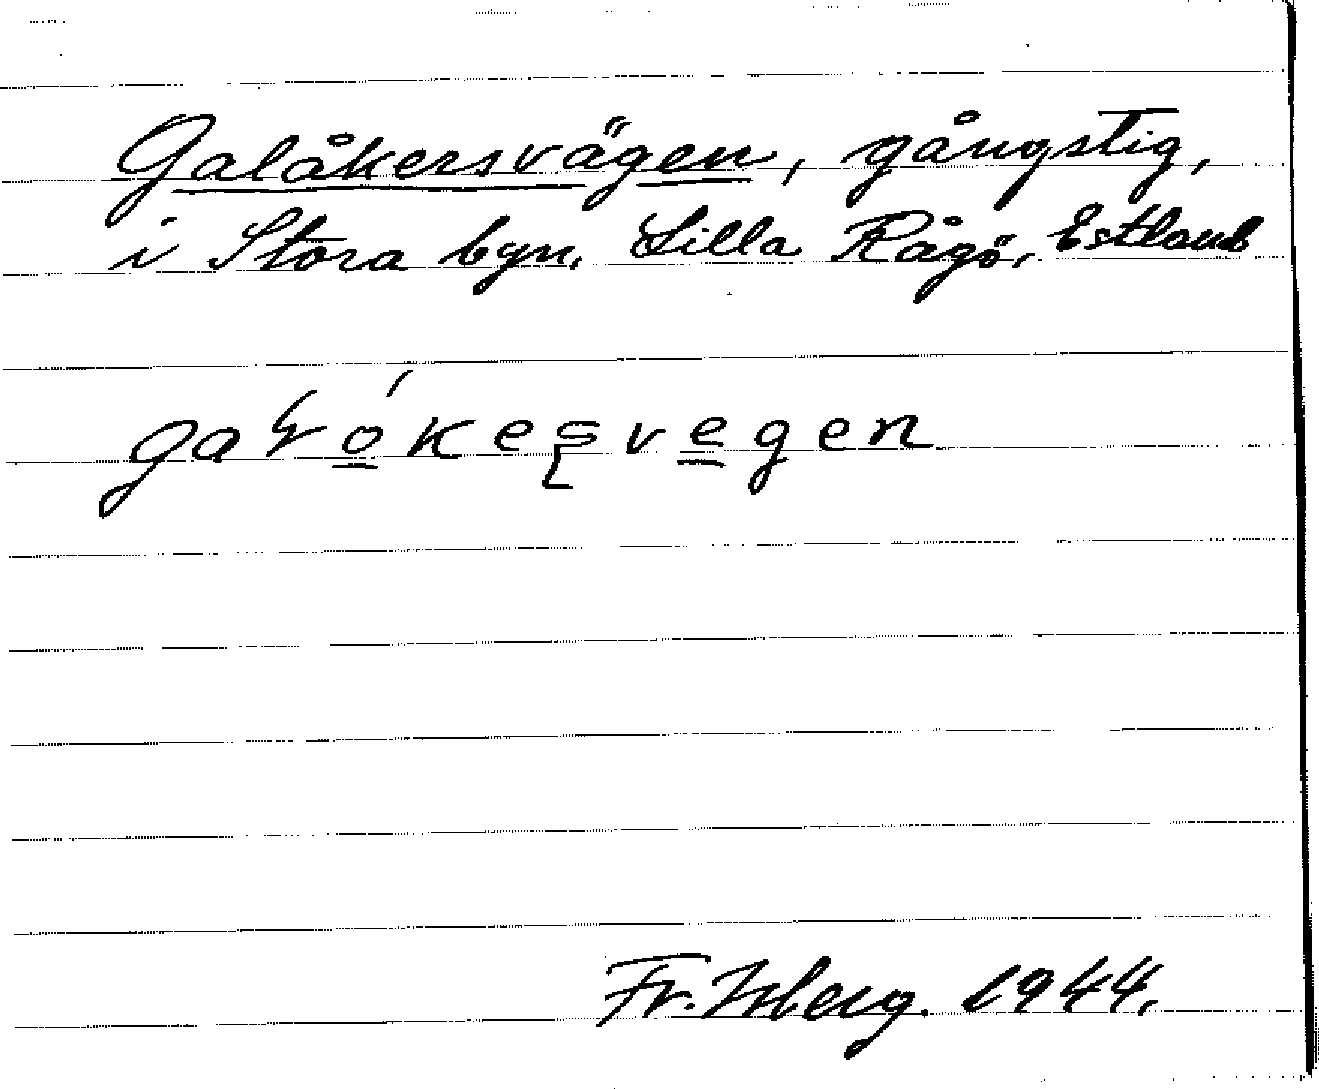 Galåkersvägen, gångstig,
i Stora byn, Lilla Rågö, Estland
gaɽǫ́kes̨vęgen
Fr. Isberg. 1944.